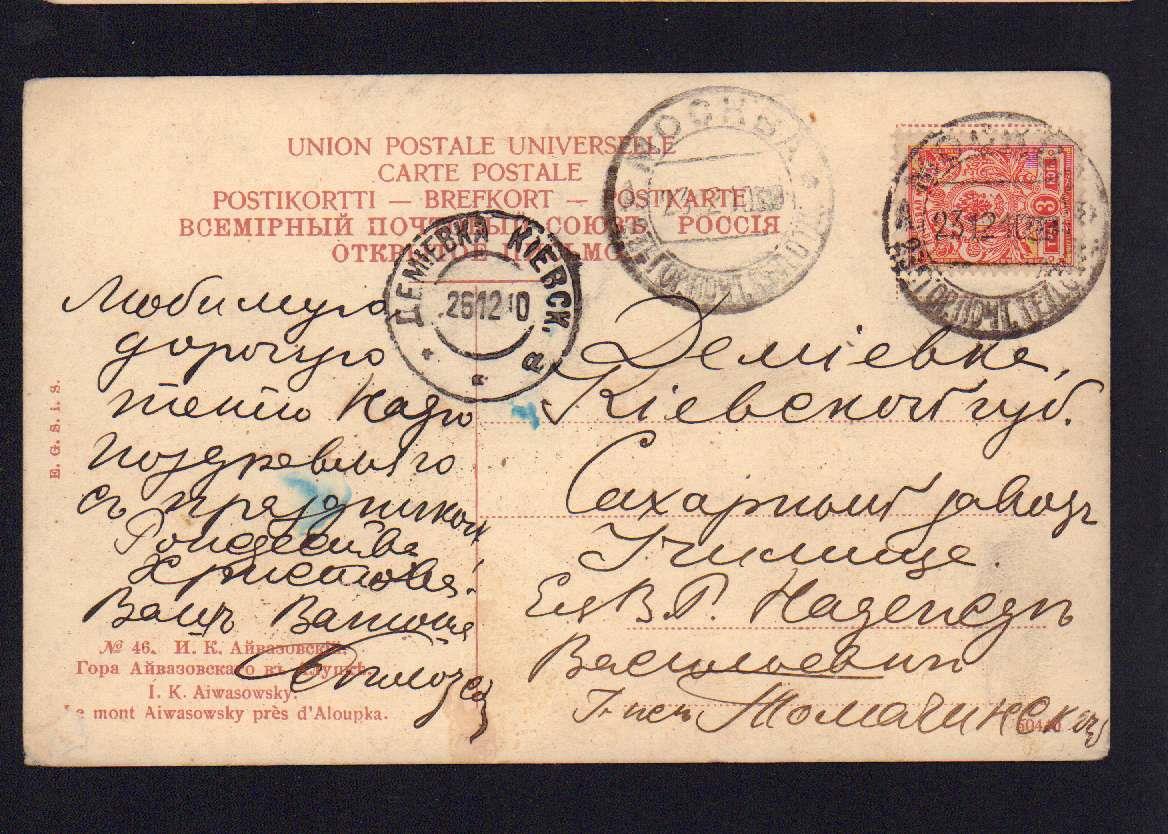 UNION POSTALE UNIVERSELLE
CARTE POSTALE
POSTIKORTTI — BREFKORT — POSTKARTE
ВСЕМІРНЫЙ ПОЧТОВЫЙ СОЮЗЪ. РОССІЯ
ОТКРЫТОЕ ПИСЬМО
МОСКВА
23.12.10
МОСКВА
23.12.10
3
ДЕМІЕВКА КІЕВСК.
26 12 10
Любимую
дорогую
тетю Надю
поздравляю
съ праздникомъ
Рождества
Христова.
Вашъ Ванюша
Деміевка,
Кіевской губ.
Сахарный заводъ
Училище.
Ея В. Р. Надеждѣ
Васильевнѣ
Г-жѣ Томачинской
E. G. S. i. S.
№ 46. И. К. Айвазовскій.
Гора Айвазовскаго въ Алупкѣ.
I. K. Aiwasowsky.
Le mont Aiwasowsky près d'Aloupka.